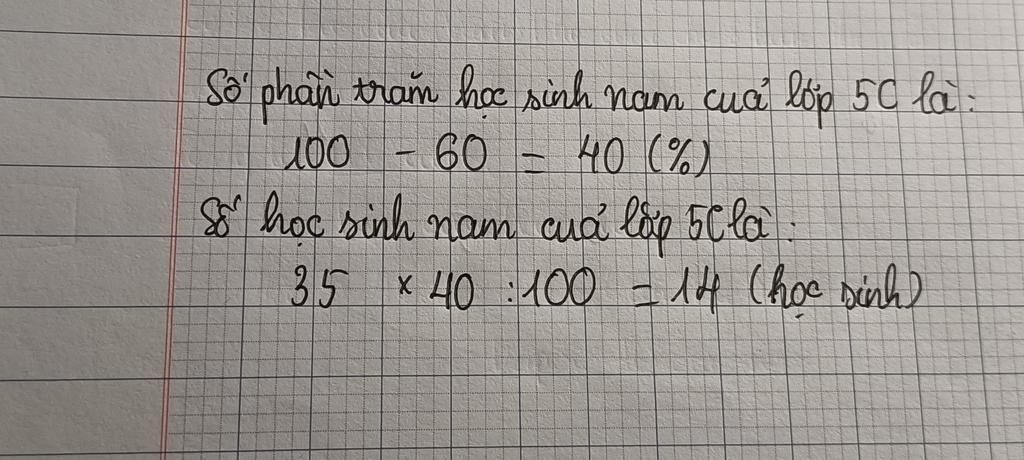 Số phần trăm học sinh nam của lớp 5C là:
100 - 60 = 40 (%)
Số học sinh nam của lớp 5C là:
35 × 40 : 100 = 14 (học sinh)